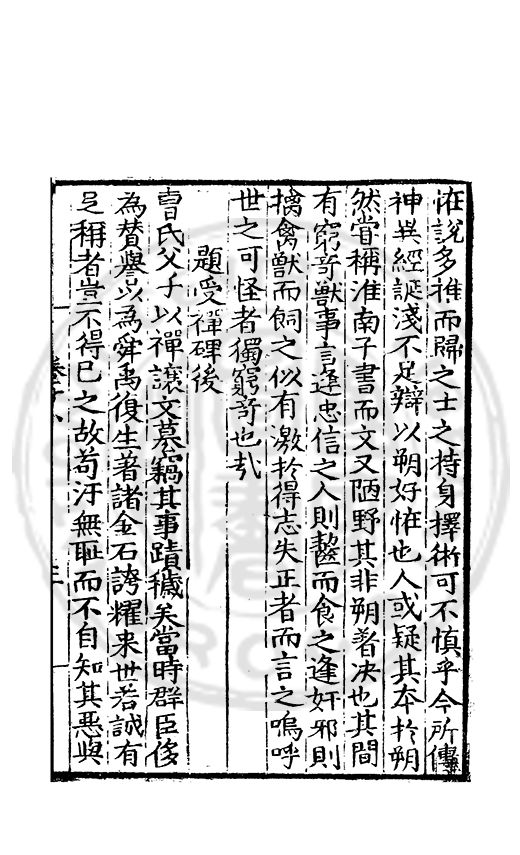 怪說多推而歸之士之持身擇術可不慎乎今所傳
神異經誕淺不足辯以朔好怪也人或疑其本扵朔
然嘗稱淮南子書而文又陋野其非朔著决也其間
有窮竒獸事言逢忠信之人則齧而食之逢奸邪則
擒禽獸而飼之似有激扵得志失正者而言之嗚呼
世之可怪者獨窮竒也㦲
題受禪碑後
曹氏父子以禪讓文墓竊其事蹟穢矣當時群臣後
為賛譽以為舜禹復生著諸金石誇耀来世若誠有
足稱者豈不得巳之故茍汙無耻而不自知其惡與
卷十八